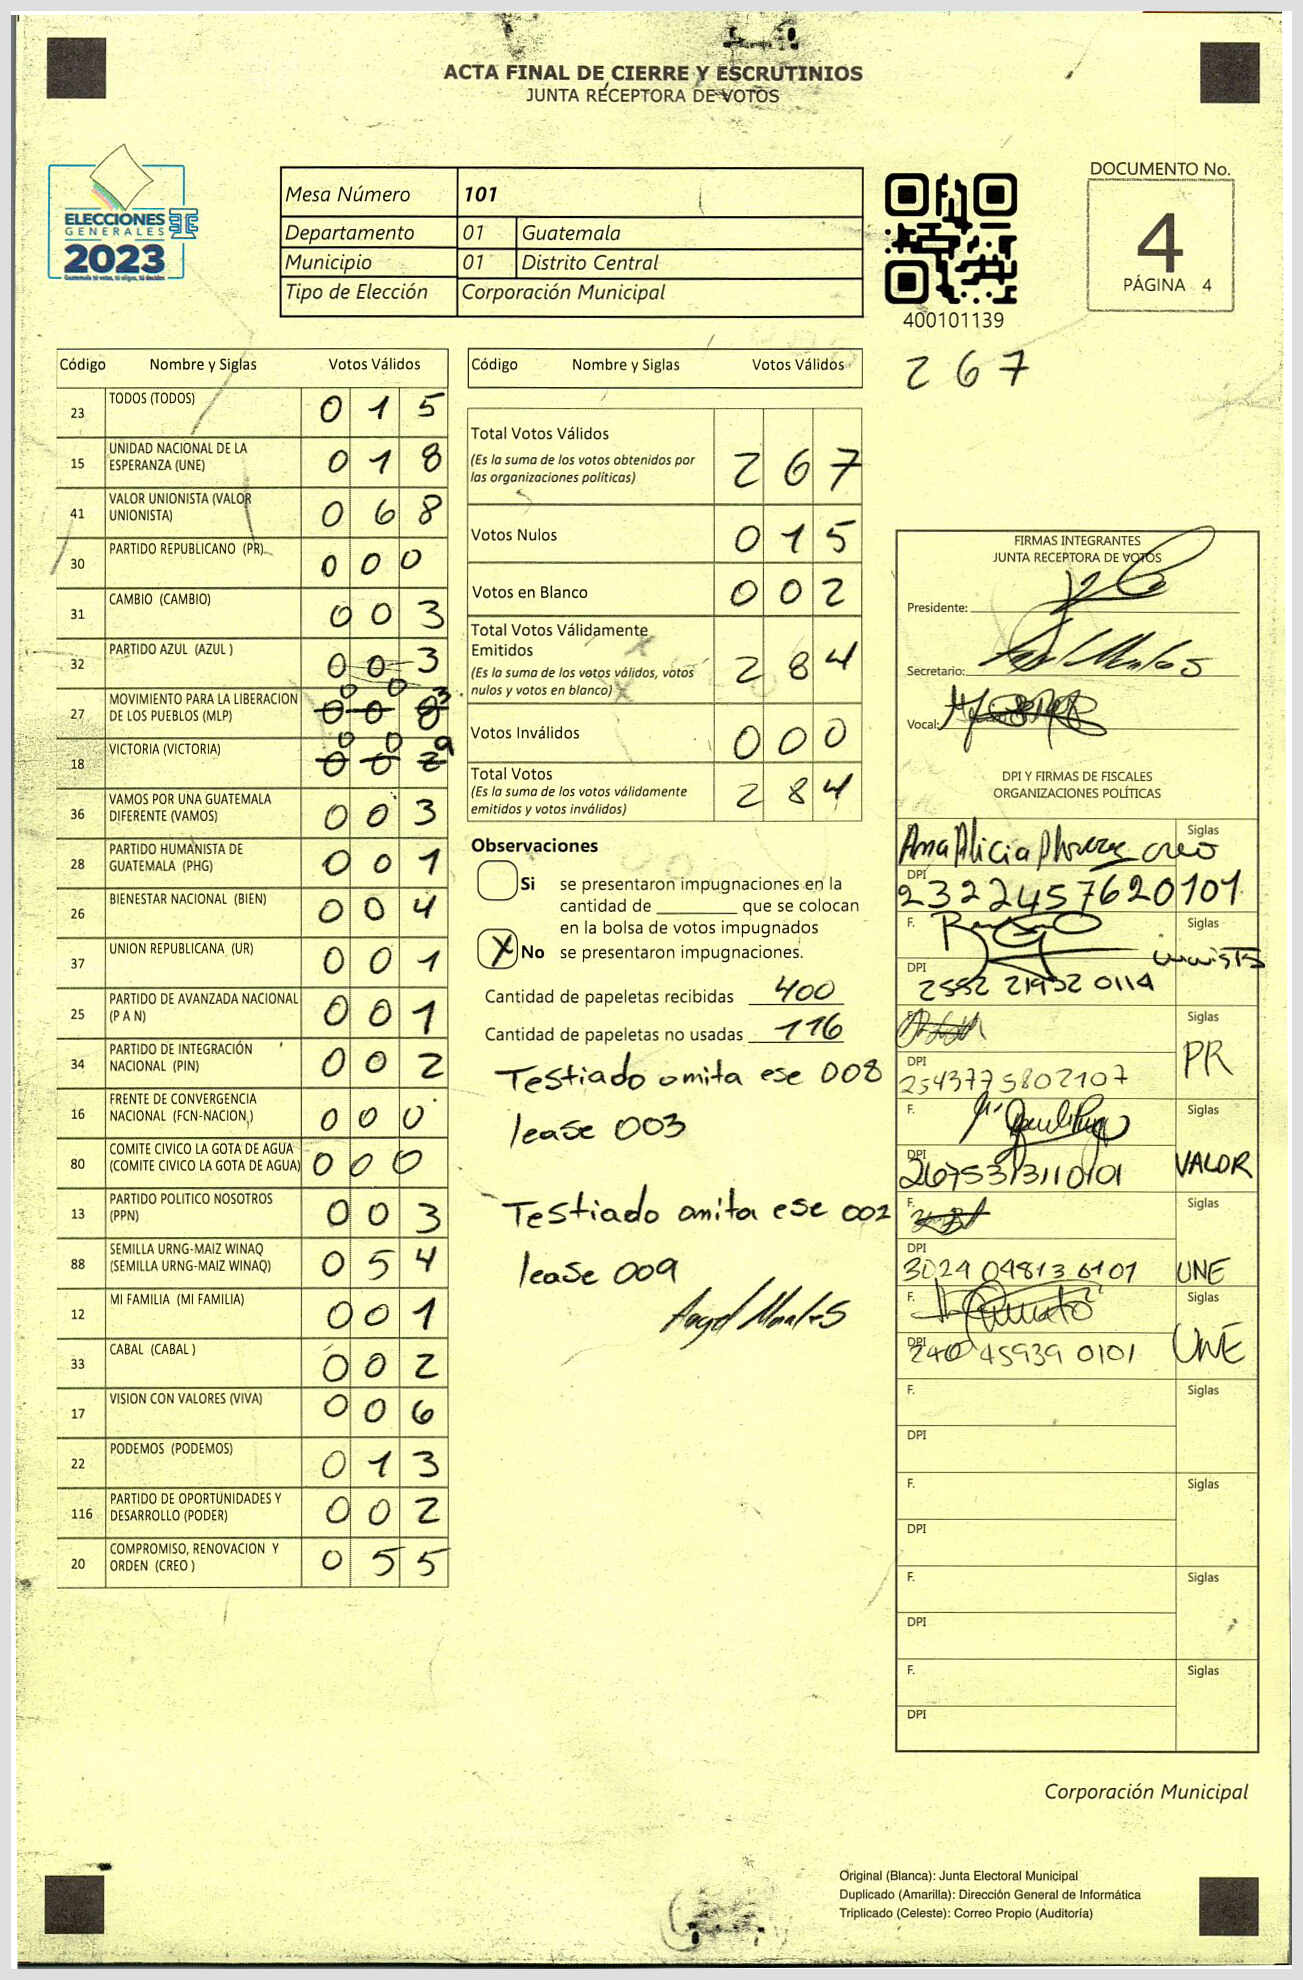 ACTA FINAL DE CIERRE Y ESCRUTINIOS
JUNTA RECEPTORA DE VOTOS
ELECCIONES
GENERALES
2023
Mesa Número 101
Departamento 01 Guatemala
Municipio 01 Distrito Central
Tipo de Elección Corporación Municipal
400101139
DOCUMENTO No.
4
PÁGINA 4
267
Código Nombre y Siglas Votos Válidos
23 TODOS (TODOS) 0 1 5
15 UNIDAD NACIONAL DE LA
ESPERANZA (UNE) 0 1 8
41 VALOR UNIONISTA (VALOR
UNIONISTA) 0 6 8
30 PARTIDO REPUBLICANO (PR) 0 0 0
31 CAMBIO (CAMBIO) 0 0 3
32 PARTIDO AZUL (AZUL ) 0 0 3
27 MOVIMIENTO PARA LA LIBERACION
DE LOS PUEBLOS (MLP) 0 0 3
18 VICTORIA (VICTORIA) 0 0 9
36 VAMOS POR UNA GUATEMALA
DIFERENTE (VAMOS) 0 0 3
28 PARTIDO HUMANISTA DE
GUATEMALA (PHG) 0 0 1
26 BIENESTAR NACIONAL (BIEN) 0 0 4
37 UNION REPUBLICANA (UR) 0 0 1
25 PARTIDO DE AVANZADA NACIONAL
(P A N) 0 0 1
34 PARTIDO DE INTEGRACIÓN
NACIONAL (PIN) 0 0 2
16 FRENTE DE CONVERGENCIA
NACIONAL (FCN-NACION,) 0 0 0
80 COMITE CIVICO LA GOTA DE AGUA
(COMITE CIVICO LA GOTA DE AGUA) 0 0 0
13 PARTIDO POLITICO NOSOTROS
(PPN) 0 0 3
88 SEMILLA URNG-MAIZ WINAQ
(SEMILLA URNG-MAIZ WINAQ) 0 5 4
12 MI FAMILIA (MI FAMILIA) 0 0 1
33 CABAL (CABAL ) 0 0 2
17 VISION CON VALORES (VIVA) 0 0 6
22 PODEMOS (PODEMOS) 0 1 3
116 PARTIDO DE OPORTUNIDADES Y
DESARROLLO (PODER) 0 0 2
20 COMPROMISO, RENOVACION Y
ORDEN (CREO ) 0 5 5
Código Nombre y Siglas Votos Válidos
Total Votos Válidos
(Es la suma de los votos obtenidos por
las organizaciones políticas) 2 6 7
Votos Nulos 0 1 5
Votos en Blanco 0 0 2
Total Votos Válidamente
Emitidos
(Es la suma de los votos válidos, votos
nulos y votos en blanco) 2 8 4
Votos Inválidos 0 0 0
Total Votos
(Es la suma de los votos válidamente
emitidos y votos inválidos) 2 8 4
Observaciones
Si se presentaron impugnaciones en la
cantidad de ________ que se colocan
en la bolsa de votos impugnados
X No se presentaron impugnaciones.
Cantidad de papeletas recibidas 400
Cantidad de papeletas no usadas 116
Testiado omita ese 008
lease 003
Testiado omita ese 002
lease 009
Angel Morales
FIRMAS INTEGRANTES
JUNTA RECEPTORA DE VOTOS
Presidente:
Secretario:
Vocal:
DPI Y FIRMAS DE FISCALES
ORGANIZACIONES POLÍTICAS
Ana Alicia Siglas creo
DPI 2322457620101
F. Siglas
DPI 2552 21952 0114
Siglas PR
DPI 2543775802107
F. Siglas VALOR
DPI 2675313110101
F. Siglas UNE
DPI 3024 04813 0101
F. Siglas UNE
DPI 240 45939 0101
F. Siglas
DPI
F. Siglas
DPI
F. Siglas
DPI
F. Siglas
DPI
Corporación Municipal
Original (Blanca): Junta Electoral Municipal
Duplicado (Amarilla): Dirección General de Informática
Triplicado (Celeste): Correo Propio (Auditoría)